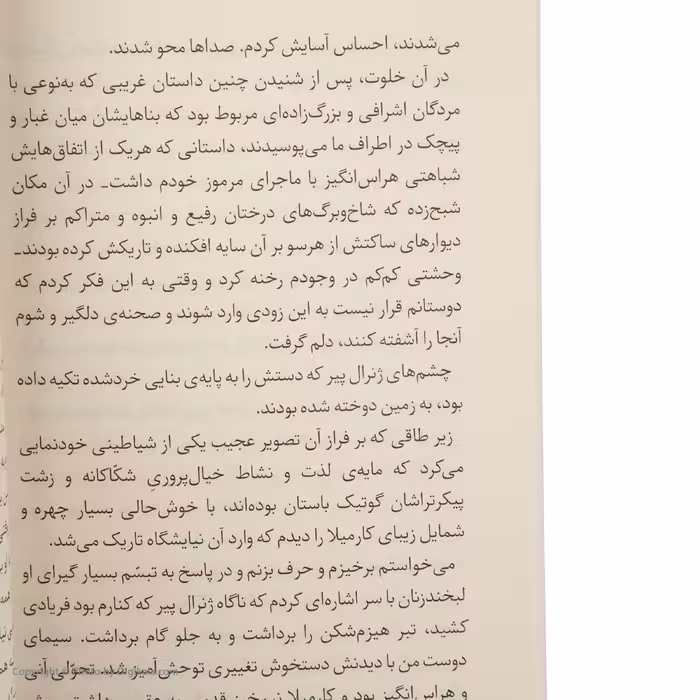 می‌شدند، احساس آسایش کردم. صداها محو شدند.
در آن خلوت، پس از شنیدن چنین داستان غریبی که به‌نوعی با
مردگان اشرافی و بزرگ‌زاده‌ای مربوط بود که بناهایشان میان غبار و
پیچک در اطراف ما می‌پوسیدند، داستانی که هریک از اتفاق‌هایش
شباهتی هراس‌انگیز با ماجرای مرموز خودم داشت- در آن مکان
شبح‌زده که شاخ‌وبرگ‌های درختان رفیع و انبوه و متراکم بر فراز
دیوارهای ساکتش از هرسو بر آن سایه افکنده و تاریکش کرده بودند-
وحشتی کم‌کم در وجودم رخنه کرد و وقتی به این فکر کردم که
دوستانم قرار نیست به این زودی وارد شوند و صحنه‌ی دلگیر و شوم
آنجا را آشفته کنند، دلم گرفت.
چشم‌های ژنرال پیر که دستش را به پایه‌ی بنایی خردشده تکیه داده
بود، به زمین دوخته شده بودند.
زیر طاقی که بر فراز آن تصویر عجیب یکی از شیاطینی خودنمایی
می‌کرد که مایه‌ی لذت و نشاط خیال‌پروریِ شکّاکانه و زشت
پیکرتراشان گوتیک باستان بوده‌اند، با خوش‌حالی بسیار چهره و
شمایل زیبای کارمیلا را دیدم که وارد آن نیایشگاه تاریک می‌شد.
می‌خواستم برخیزم و حرف بزنم و در پاسخ به تبسّم بسیار گیرای او
لبخندزنان با سر اشاره‌ای کردم که ناگاه ژنرال پیر که کنارم بود فریادی
کشید، تبر هیزم‌شکن را برداشت و به جلو گام برداشت. سیمای
دوست من با دیدنش دستخوش تغییری توحش‌آمیز شد. تحوّلی آنی
و هراس‌انگیز بود و کارمیلا